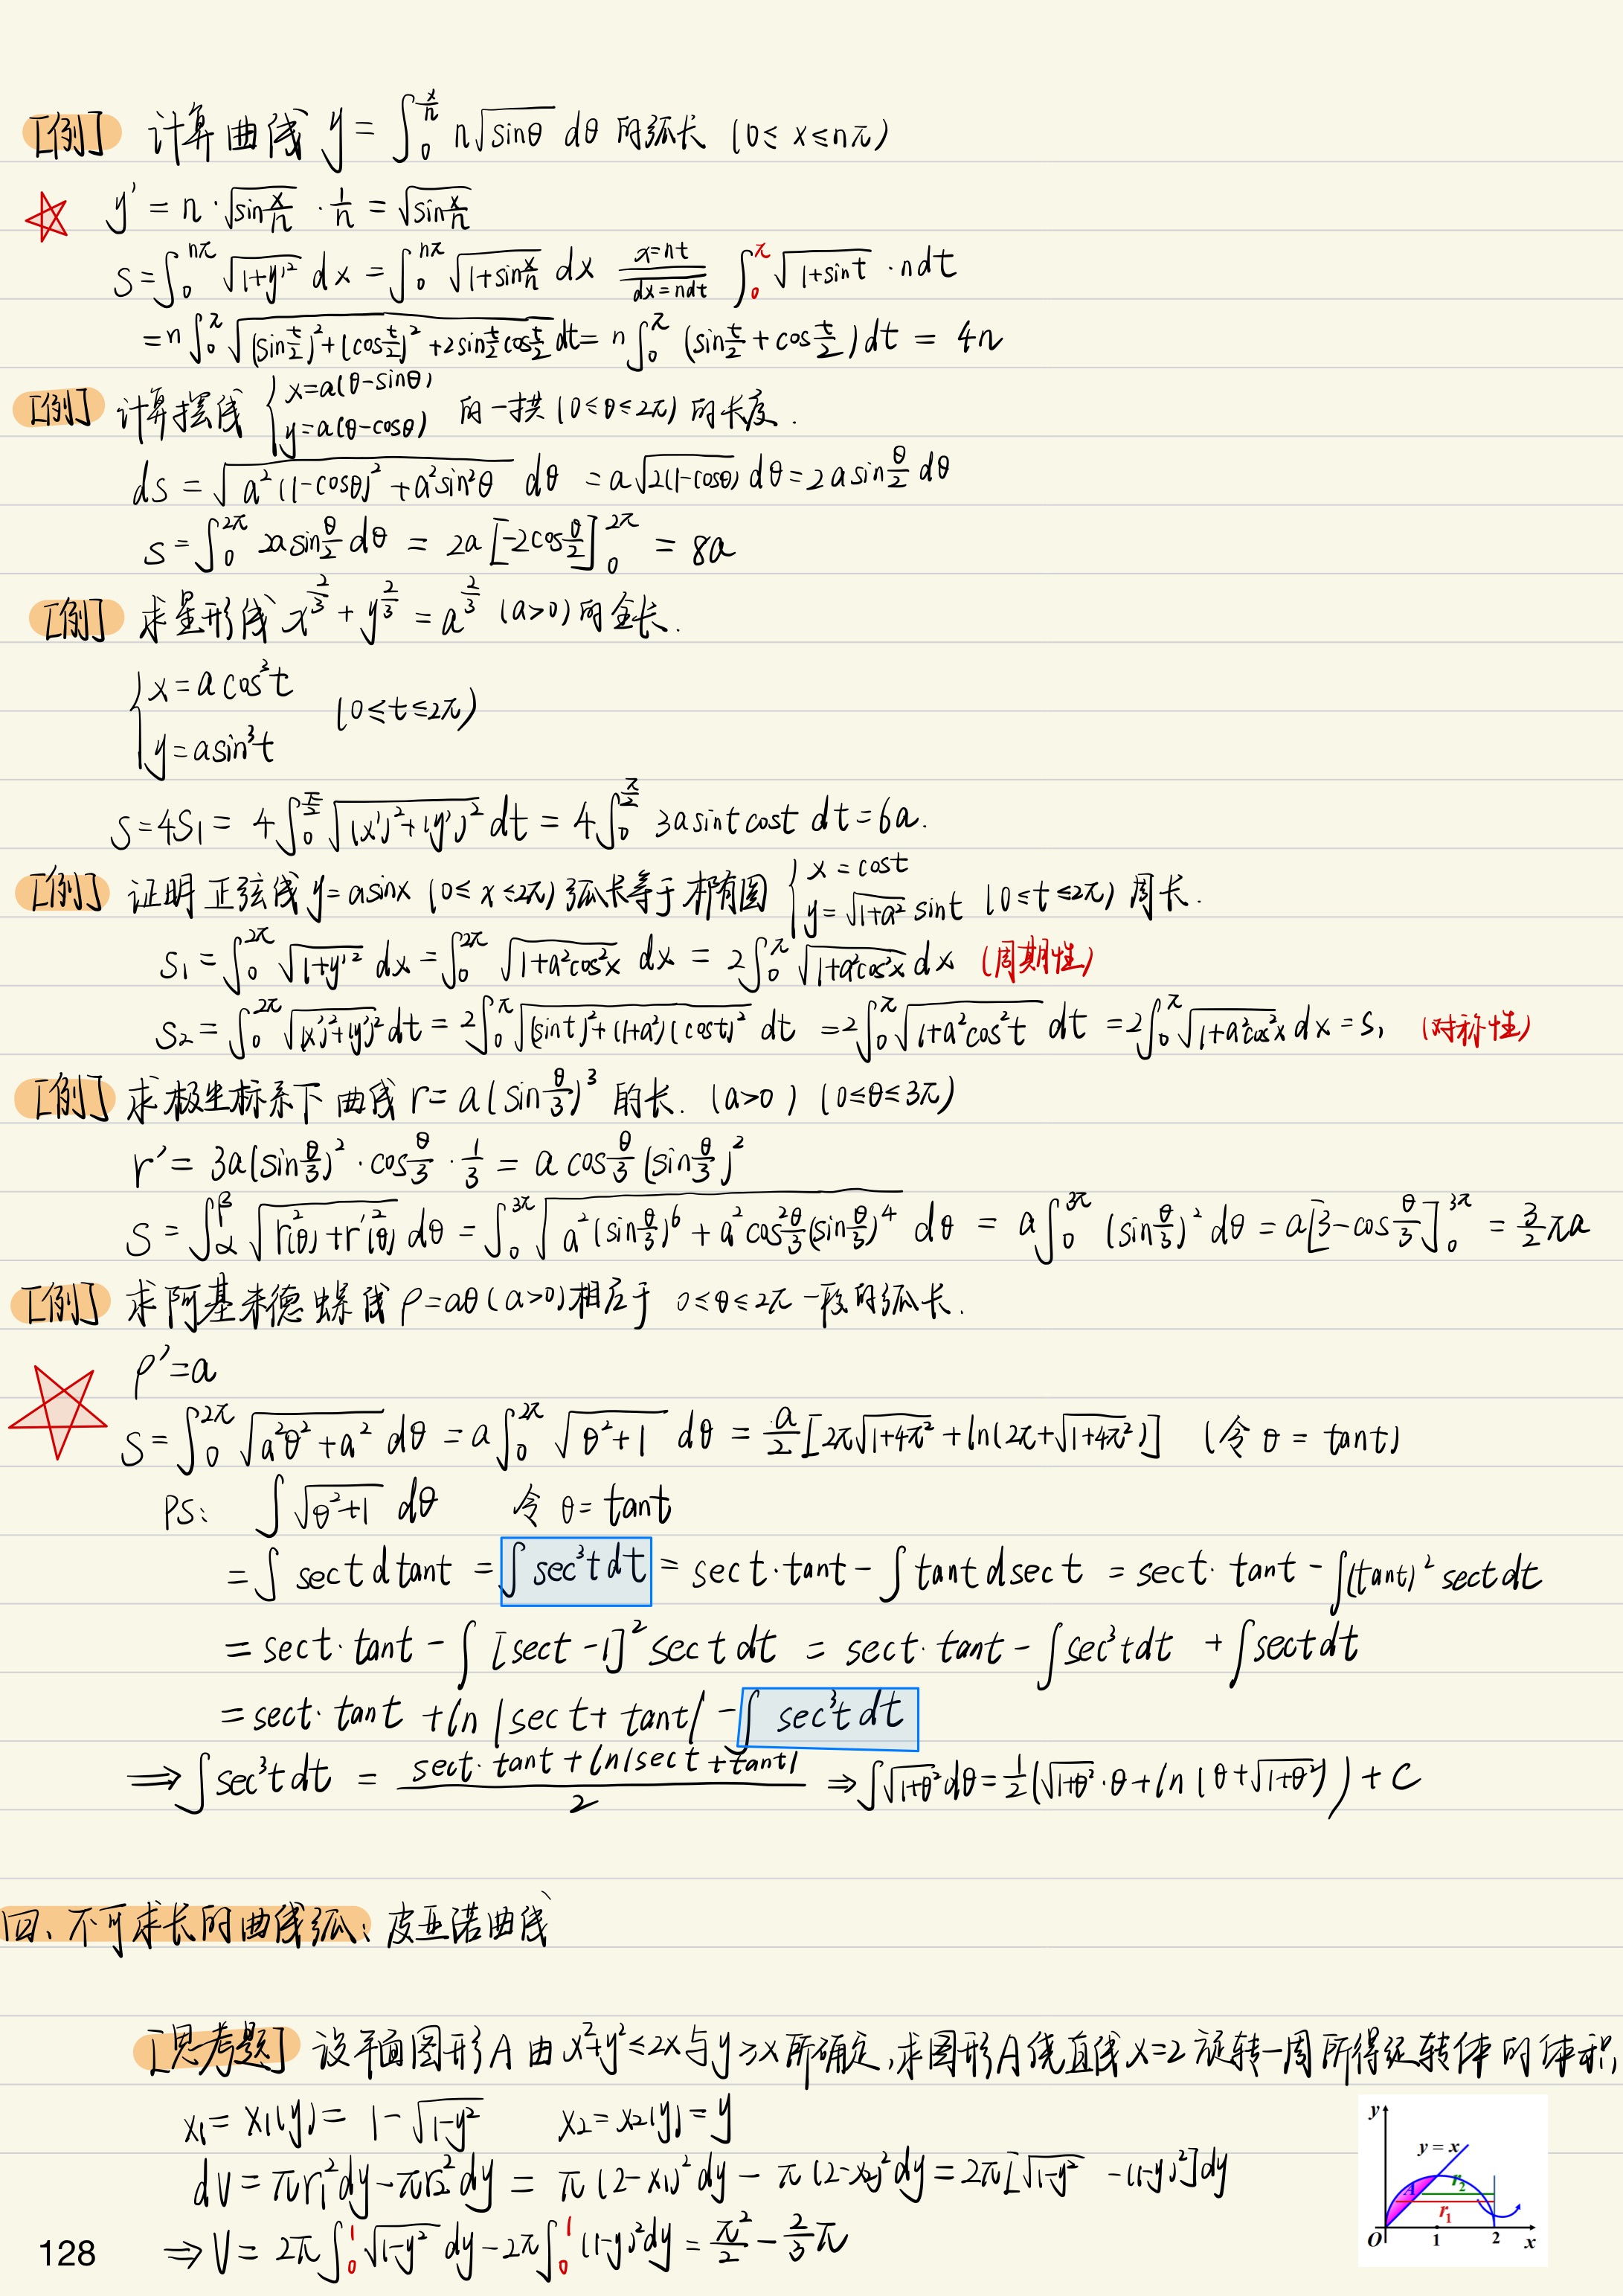 [例] 计算曲线 y = ∫₀^{x/n} n√sinθ dθ 的弧长 (0≤x≤nπ)
y' = n·√sin(x/n) · 1/n = √sin(x/n)
S = ∫₀^{nπ} √(1+y'²) dx = ∫₀^{nπ} √(1+sin(x/n)) dx  x=nt / dx=ndt  ∫₀^π √(1+sint) · ndt
= n∫₀^π √((sin t/2)²+(cos t/2)²+2sin t/2 cos t/2) dt = n∫₀^π (sin t/2 + cos t/2)dt = 4n
[例] 计算摆线 { x=a(θ-sinθ) y=a(θ-cosθ) 的一拱 (0≤θ≤2π) 的长度.
ds = √(a²(1-cosθ)²+a²sin²θ) dθ = a√(2(1-cosθ)) dθ = 2a sin θ/2 dθ
S = ∫₀^{2π} 2a sin θ/2 dθ = 2a[-2cos θ/2]₀^{2π} = 8a
[例] 求星形线 x^{2/3} + y^{2/3} = a^{2/3} (a>0) 的全长.
{ x = a cos³t
(0≤t≤2π)
y = a sin³t
S = 4S₁ = 4∫₀^{π/2} √((x')²+(y')²) dt = 4∫₀^{π/2} 3a sint cost dt = 6a.
[例] 证明正弦线 y=asinx (0≤x≤2π) 弧长等于椭圆 { x = cost y = √(1+a²) sint (0≤t≤2π) 周长.
S₁ = ∫₀^{2π} √(1+y'²) dx = ∫₀^{2π} √(1+a²cos²x) dx = 2∫₀^π √(1+a²cos²x) dx (周期性)
S₂ = ∫₀^{2π} √((x')²+(y')²) dt = 2∫₀^π √((sint)²+(1+a²)(cost)²) dt = 2∫₀^π √(1+a²cos²t) dt = 2∫₀^π √(1+a²cos²x) dx = S₁ (对称性)
[例] 求极坐标系下曲线 r = a(sin θ/3)³ 的长. (a>0) (0≤θ≤3π)
r' = 3a(sin θ/3)² · cos θ/3 · 1/3 = a cos θ/3 (sin θ/3)²
S = ∫_α^β √(r²(θ)+r'²(θ)) dθ = ∫₀^{3π} √(a²(sin θ/3)⁶ + a²cos² θ/3 (sin θ/3)⁴) dθ = a∫₀^{3π} (sin θ/3)² dθ = a[3-cos θ/3]₀^{3π} = 3/2 πa
[例] 求阿基米德螺线 ρ=aθ (a>0) 相应于 0≤θ≤2π 一段的弧长.
ρ' = a
S = ∫₀^{2π} √(a²θ²+a²) dθ = a∫₀^{2π} √(θ²+1) dθ = a/2 [2π√(1+4π²) + ln(2π+√(1+4π²))] (令 θ = tant)
PS: ∫√(θ²+1) dθ 令 θ = tant
= ∫ sect d tant = ∫ sec³t dt = sect·tant - ∫ tant d sect = sect·tant - ∫(tant)² sect dt
= sect·tant - ∫ [sect -1]² sect dt = sect·tant - ∫sec³t dt + ∫sect dt
= sect·tant + ln|sect + tant| - ∫ sec³t dt
⇒ ∫sec³t dt = (sect·tant + ln|sect+tant|)/2 ⇒ ∫√(1+θ²) dθ = 1/2(√(1+θ²)·θ + ln(θ+√(1+θ²))) + C
四、不可求长的曲线弧: 皮亚诺曲线
[思考题] 设平面图形A由 x²+y²≤2x 与 y≥x 所确定,求图形A绕直线 x=2 旋转一周所得旋转体的体积,
x₁ = x₁(y) = 1-√(1-y²) x₂ = x₂(y) = y
dV = πr₁²dy - πr₂²dy = π(2-x₁)²dy - π(2-x₂)²dy = 2π[√(1-y²) - (1-y)²]dy
⇒ V = 2π∫₀¹ √(1-y²) dy - 2π∫₀¹ (1-y)²dy = π²/2 - 2/3 π
y
y = x
A
r₂
r₁
O 1 2 x
128